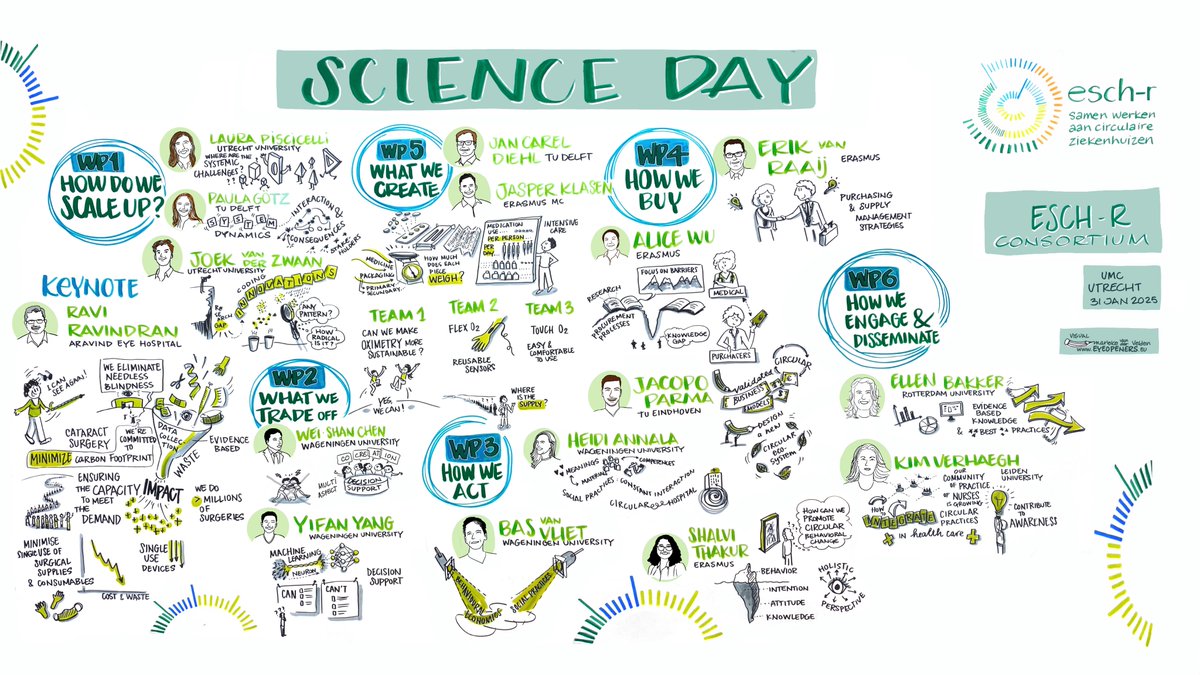 SCIENCE DAY
esch-r
samen werken
aan circulaire
ziekenhuizen
ESCH-R
CONSORTIUM
UMC
UTRECHT
31 JAN 2025
VISUAL
marieke van der Velden
www.EYEOPENERS.EU
KEYNOTE
RAVI
RAVINDRAN
ARAVIND EYE HOSPITAL
I CAN
SEE AGAIN!
WE ELIMINATE
NEEDLESS
BLINDNESS
CATARACT
SURGERY
WE'RE
COMMITTED
TO
MINIMIZE CARBON FOOTPRINT
DATA
COLLECTION
WASTE
EVIDENCE
BASED
ENSURING
THE CAPACITY
TO MEET
THE
DEMAND
IMPACT
WE DO
2 MILLIONS
OF
SURGERIES
MINIMISE
SINGLE USE OF
SURGICAL
SUPPLIES
& CONSUMABLES
SINGLE
USE
DEVICES
COST & WASTE
WP1
HOW DO WE
SCALE UP?
LAURA PISCICELLI
UTRECHT UNIVERSITY
WHERE ARE THE
SYSTEMIC
CHALLENGES?
??
PAULA GÖTZ
TU DELFT
SYSTEM
DYNAMICS
INTERACTION OF
CONSEQUENCES
JOEK VAN
DER ZWAAN
UTRECHT UNIVERSITY
CODING
INNOVATIONS
RESEARCH
GAP
ANY
PATTERN?
HOW
RADICAL
IS IT?
WP2
WHAT WE
TRADE OFF
WEI SHAN CHEN
WAGENINGEN UNIVERSITY
CO CREATION
MULTI
ASPECT
DECISION
SUPPORT
YIFAN YANG
WAGENINGEN UNIVERSITY
MACHINE
LEARNING
NEURON
DECISION
SUPPORT
CAN
CAN'T
WP5
WHAT WE
CREATE
JAN CAREL
DIEHL TU DELFT
JASPER KLASEN
ERASMUS MC
MEDICATION
USE...
PER PERSON
PER
DAY
INTENSIVE
CARE
MEDICINE
PACKAGING
PRIMARY
SECUNDARY
HOW MUCH
DOES EACH
PIECE
WEIGH?
TEAM 1
CAN WE MAKE
OXIMETRY MORE
SUSTAINABLE?
YES,
WE CAN!
TEAM 2
FLEX O2
REUSABLE
SENSORS
TEAM 3
TOUCH O2
EASY &
COMFORTABLE
TO USE
WHERE
IS THE
SUPPLY?
WP3
HOW WE
ACT
HEIDI ANNALA
WAGENINGEN UNIVERSITY
MEANINGS
MATERIALS
COMPETENCES
SOCIAL PRACTICES
CONSTANT INTERACTION
CIRCULAR
HOSPITAL
BAS VAN
VLIET
WAGENINGEN UNIVERSITY
BEHAVIORAL
ECONOMICS
SOCIAL PRACTICES
SHALVI
THAKUR
ERASMUS
HOW CAN WE
PROMOTE
CIRCULAR
BEHAVIORAL
CHANGE
BEHAVIOR
INTENTION
ATTITUDE
KNOWLEDGE
HOLISTIC
PERSPECTIVE
WP4
HOW WE
BUY
ERIK VAN
RAAIJ
ERASMUS
PURCHASING
& SUPPLY
MANAGEMENT
STRATEGIES
ALICE WU
ERASMUS
FOCUS ON BARRIERS
RESEARCH
MEDICAL
PROCUREMENT
PROCESSES
KNOWLEDGE
GAP
PURCHATERS
JACOPO
PARMA
TU EINDHOVEN
CIRCULAR
validated
BUSINESS
MODELS
DESIGN
A NEW
CIRCULAR
ECO-
SYSTEM
WP6
HOW WE
ENGAGE &
DISSEMINATE
ELLEN BAKKER
ROTTERDAM UNIVERSITY
EVIDENCE
BASED
KNOWLEDGE
& BEST PRACTICES
KIM VERHAEGH
LEIDEN
UNIVERSITY
OUR
COMMUNITY
OF PRACTICE
OF
NURSES
IS GROWING
HOW
INTEGRATE
CIRCULAR
PRACTICES
IN health CARE
CONTRIBUTE
TO
AWARENESS